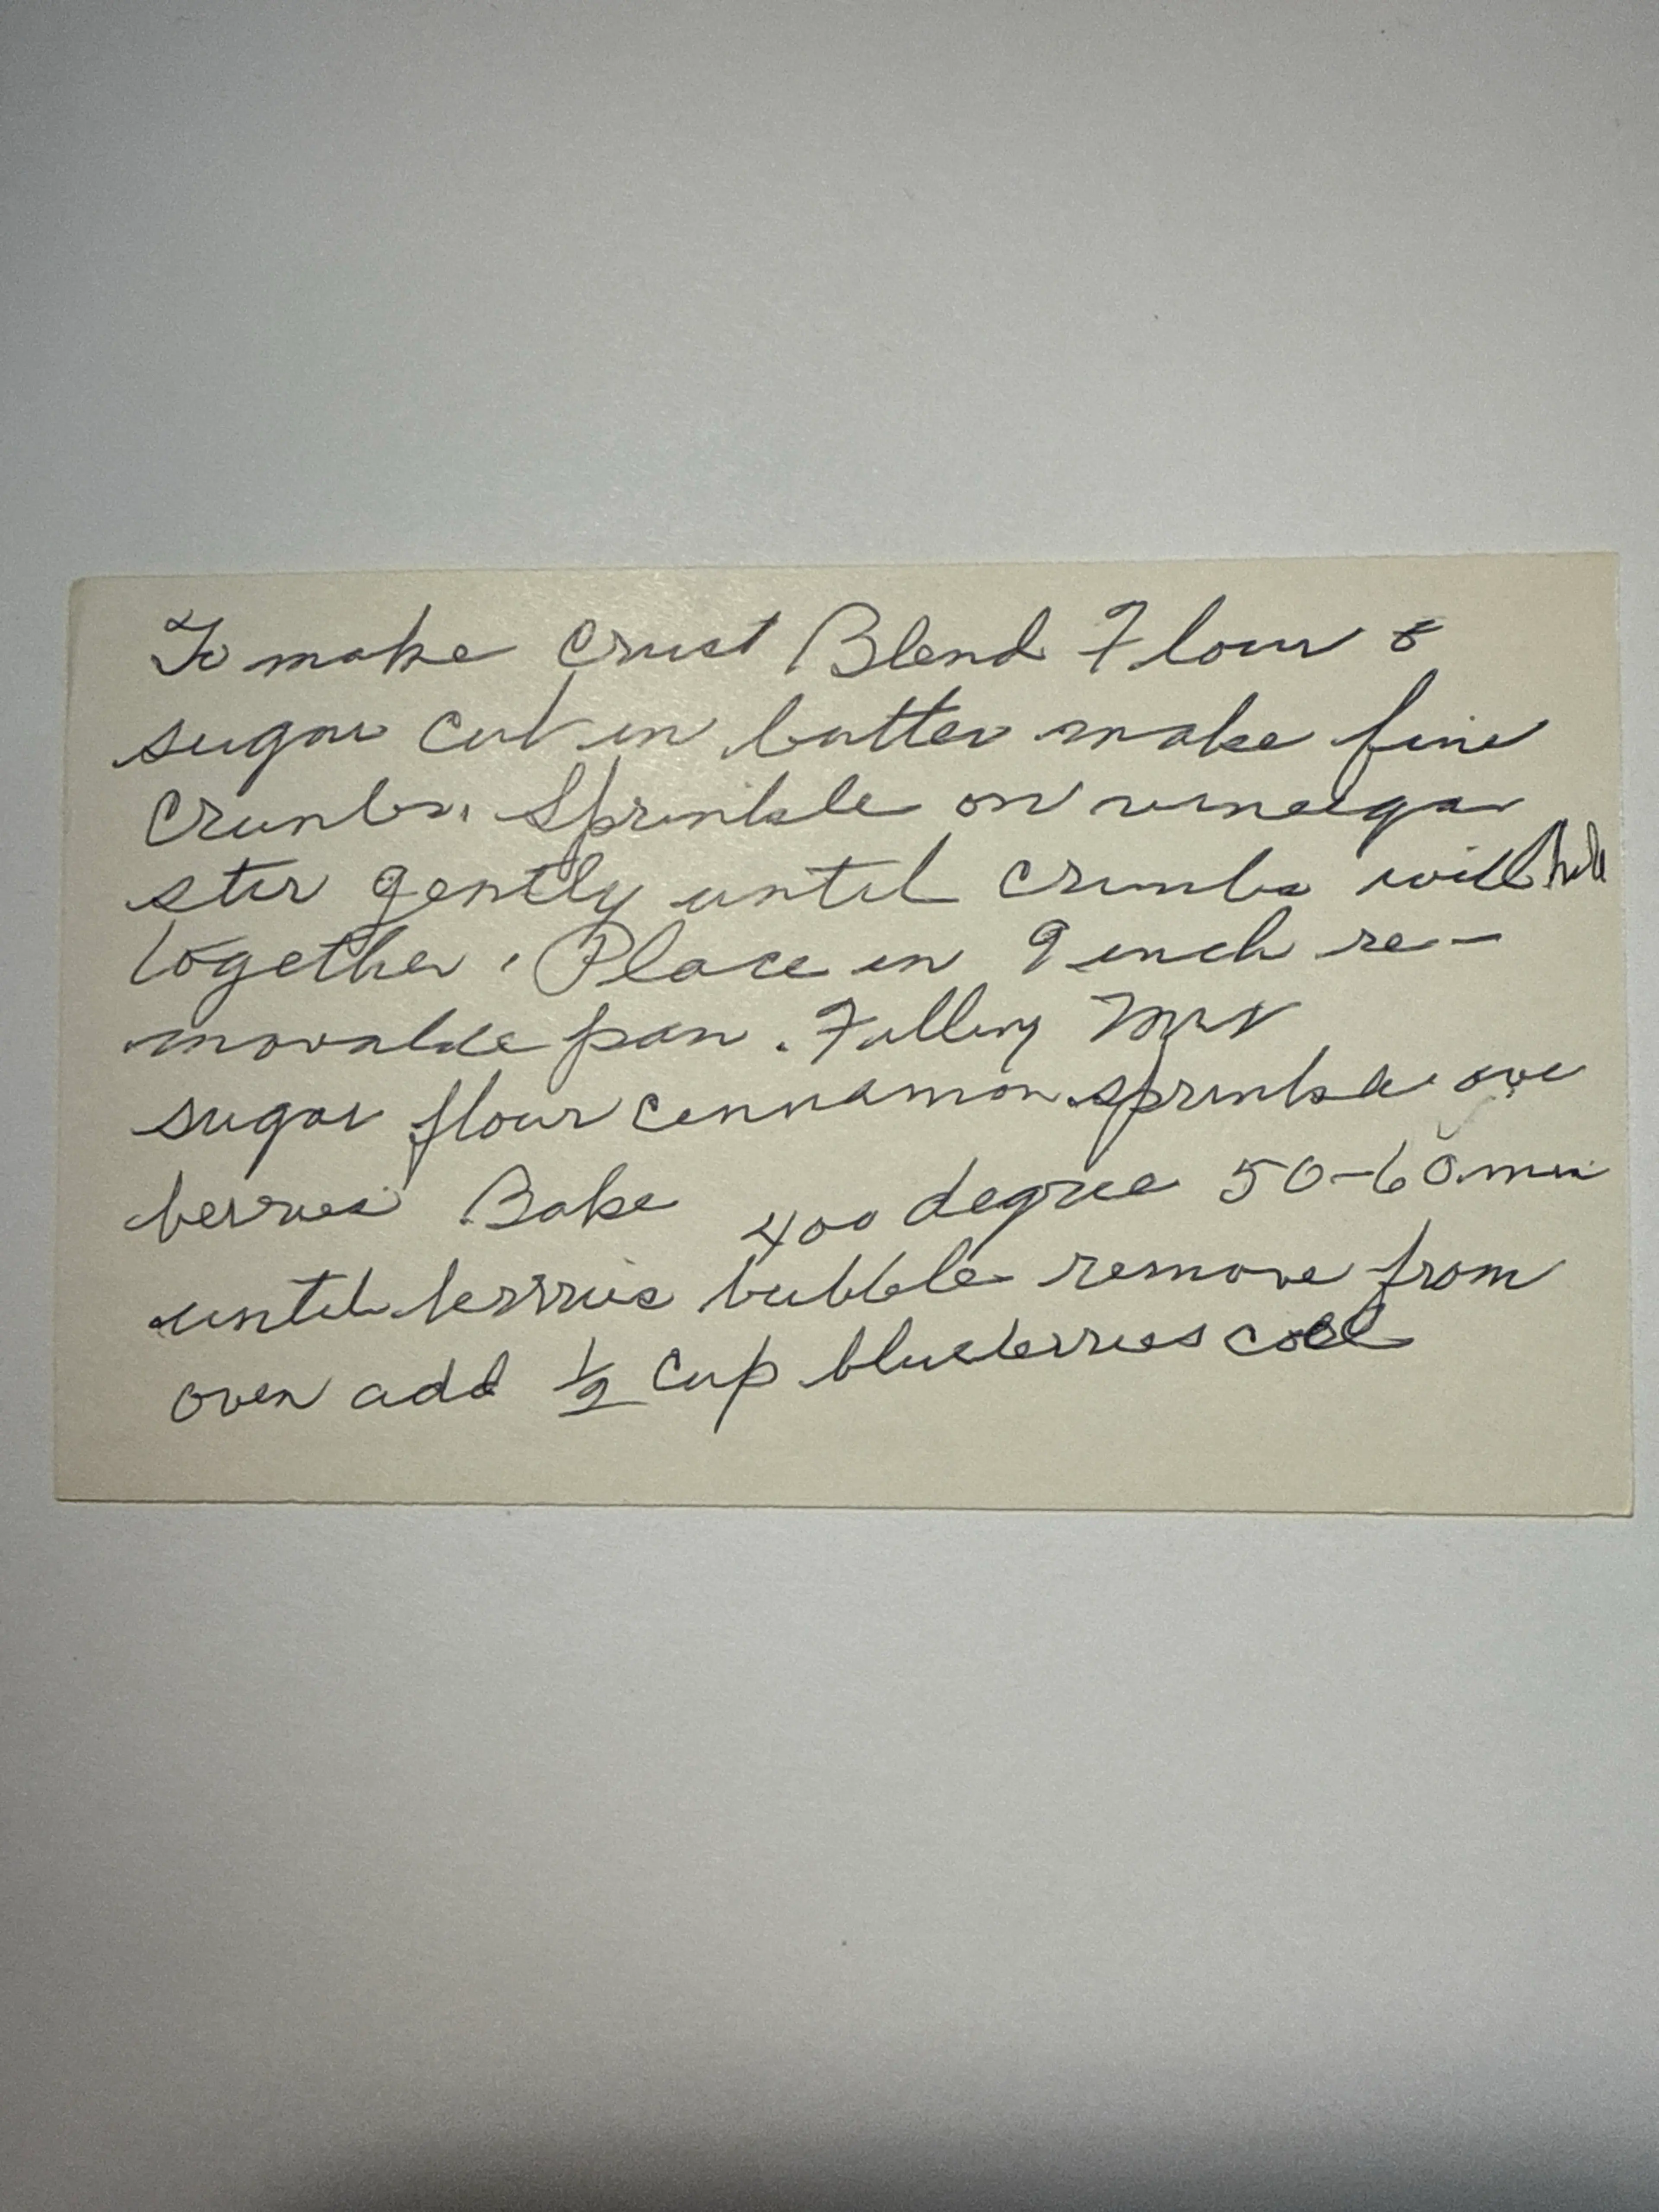 To make Crust Blend Flour &
sugar cut in butter make fine
Crumbs. Sprinkle on vinegar
stir gently until crumbs will hold
together. Place in 9 inch re-
movable pan. Filling Mix
sugar flour cinnamon sprinkle over
berries Bake 400 degree 50-60 min
until berries bubble remove from
oven add 1/2 cup blueberries cool